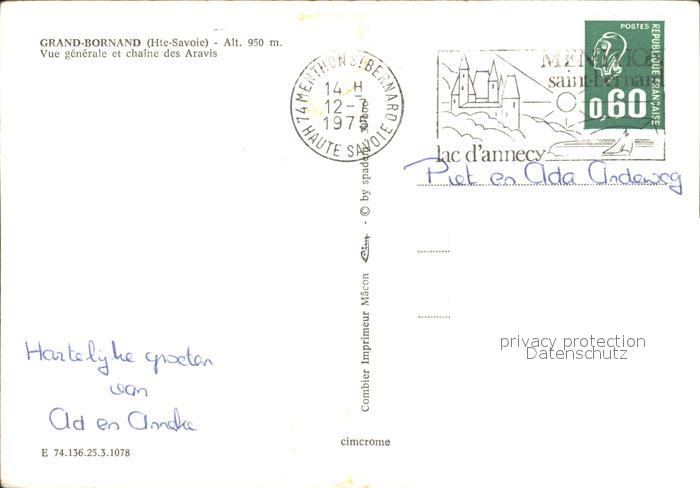 GRAND-BORNAND (Hte-Savoie) - Alt. 950 m.
Vue générale et chaîne des Aravis
74 MENTHON ST BERNARD
14 H
12-7
1975
HAUTE SAVOIE
MENTHON
saint-bernard
lac d'annecy
POSTES
REPUBLIQUE FRANÇAISE
0,60
Piet en Ada Andeweg
Hartelijke groeten
van
Ad en
E 74.136.25.3.1078
Combier Imprimeur Mâcon Cim - © by spadem
cimcrome
privacy protection
Datenschutz